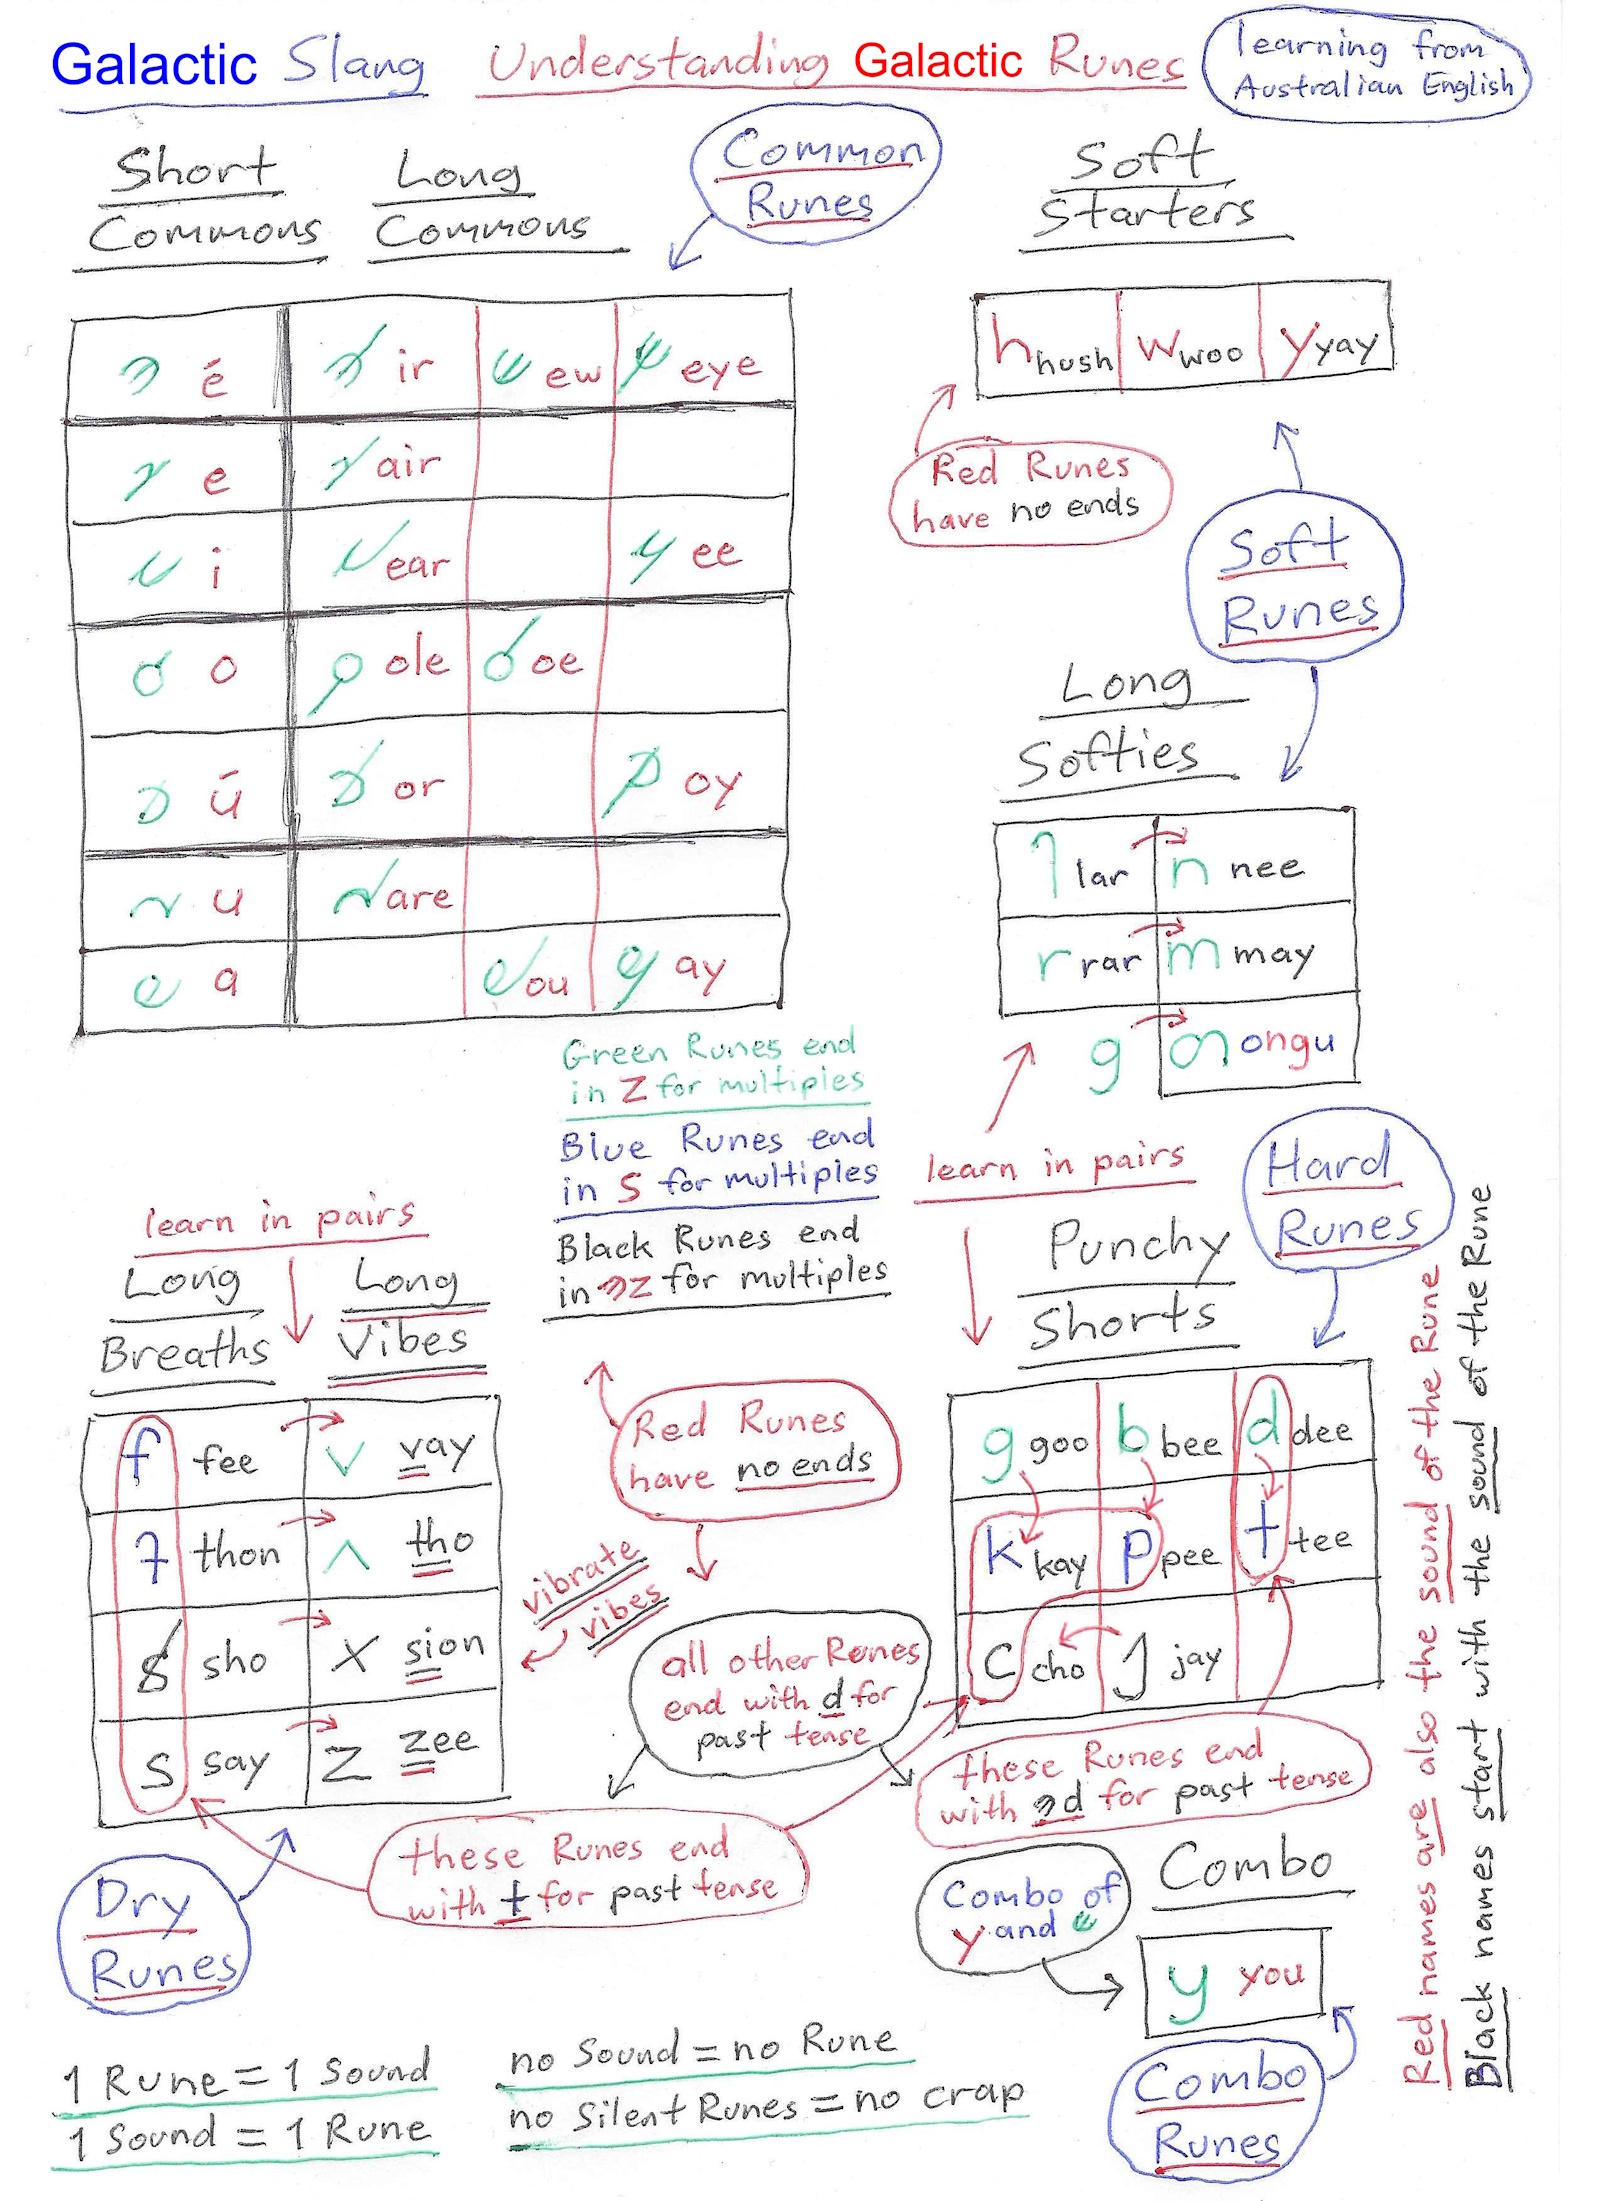 Galactic Slang Understanding Galactic Runes
learning from
Australian English
Short
Commons
Long
Commons
Common
Runes
Soft
Starters
é ir ew eye
e air
i ear ee
o ole oe
ú or oy
u are
a ou ay
h hush w woo y yay
Red Runes
have no ends
Soft
Runes
Long
Softies
lar n nee
r rar m may
g ongu
learn in pairs
Green Runes end
in z for multiples
Blue Runes end
in s for multiples
Black Runes end
in z for multiples
learn in pairs
Long
Breaths
Long
Vibes
f fee v vay
thon ʌ tho
sho x sion
s say z zee
vibrate
vibes
Red Runes
have no ends
Hard
Runes
Punchy
Shorts
g goo b bee d dee
k kay p pee t tee
c cho J jay
all other Runes
end with d for
past tense
these Runes end
with d for past tense
these Runes end
with t for past tense
Dry
Runes
Combo of
y and
Combo
y you
Combo
Runes
Red names are also the sound of the Rune
Black names start with the sound of the Rune
1 Rune = 1 Sound
1 Sound = 1 Rune
no Sound = no Rune
no Silent Runes = no crap